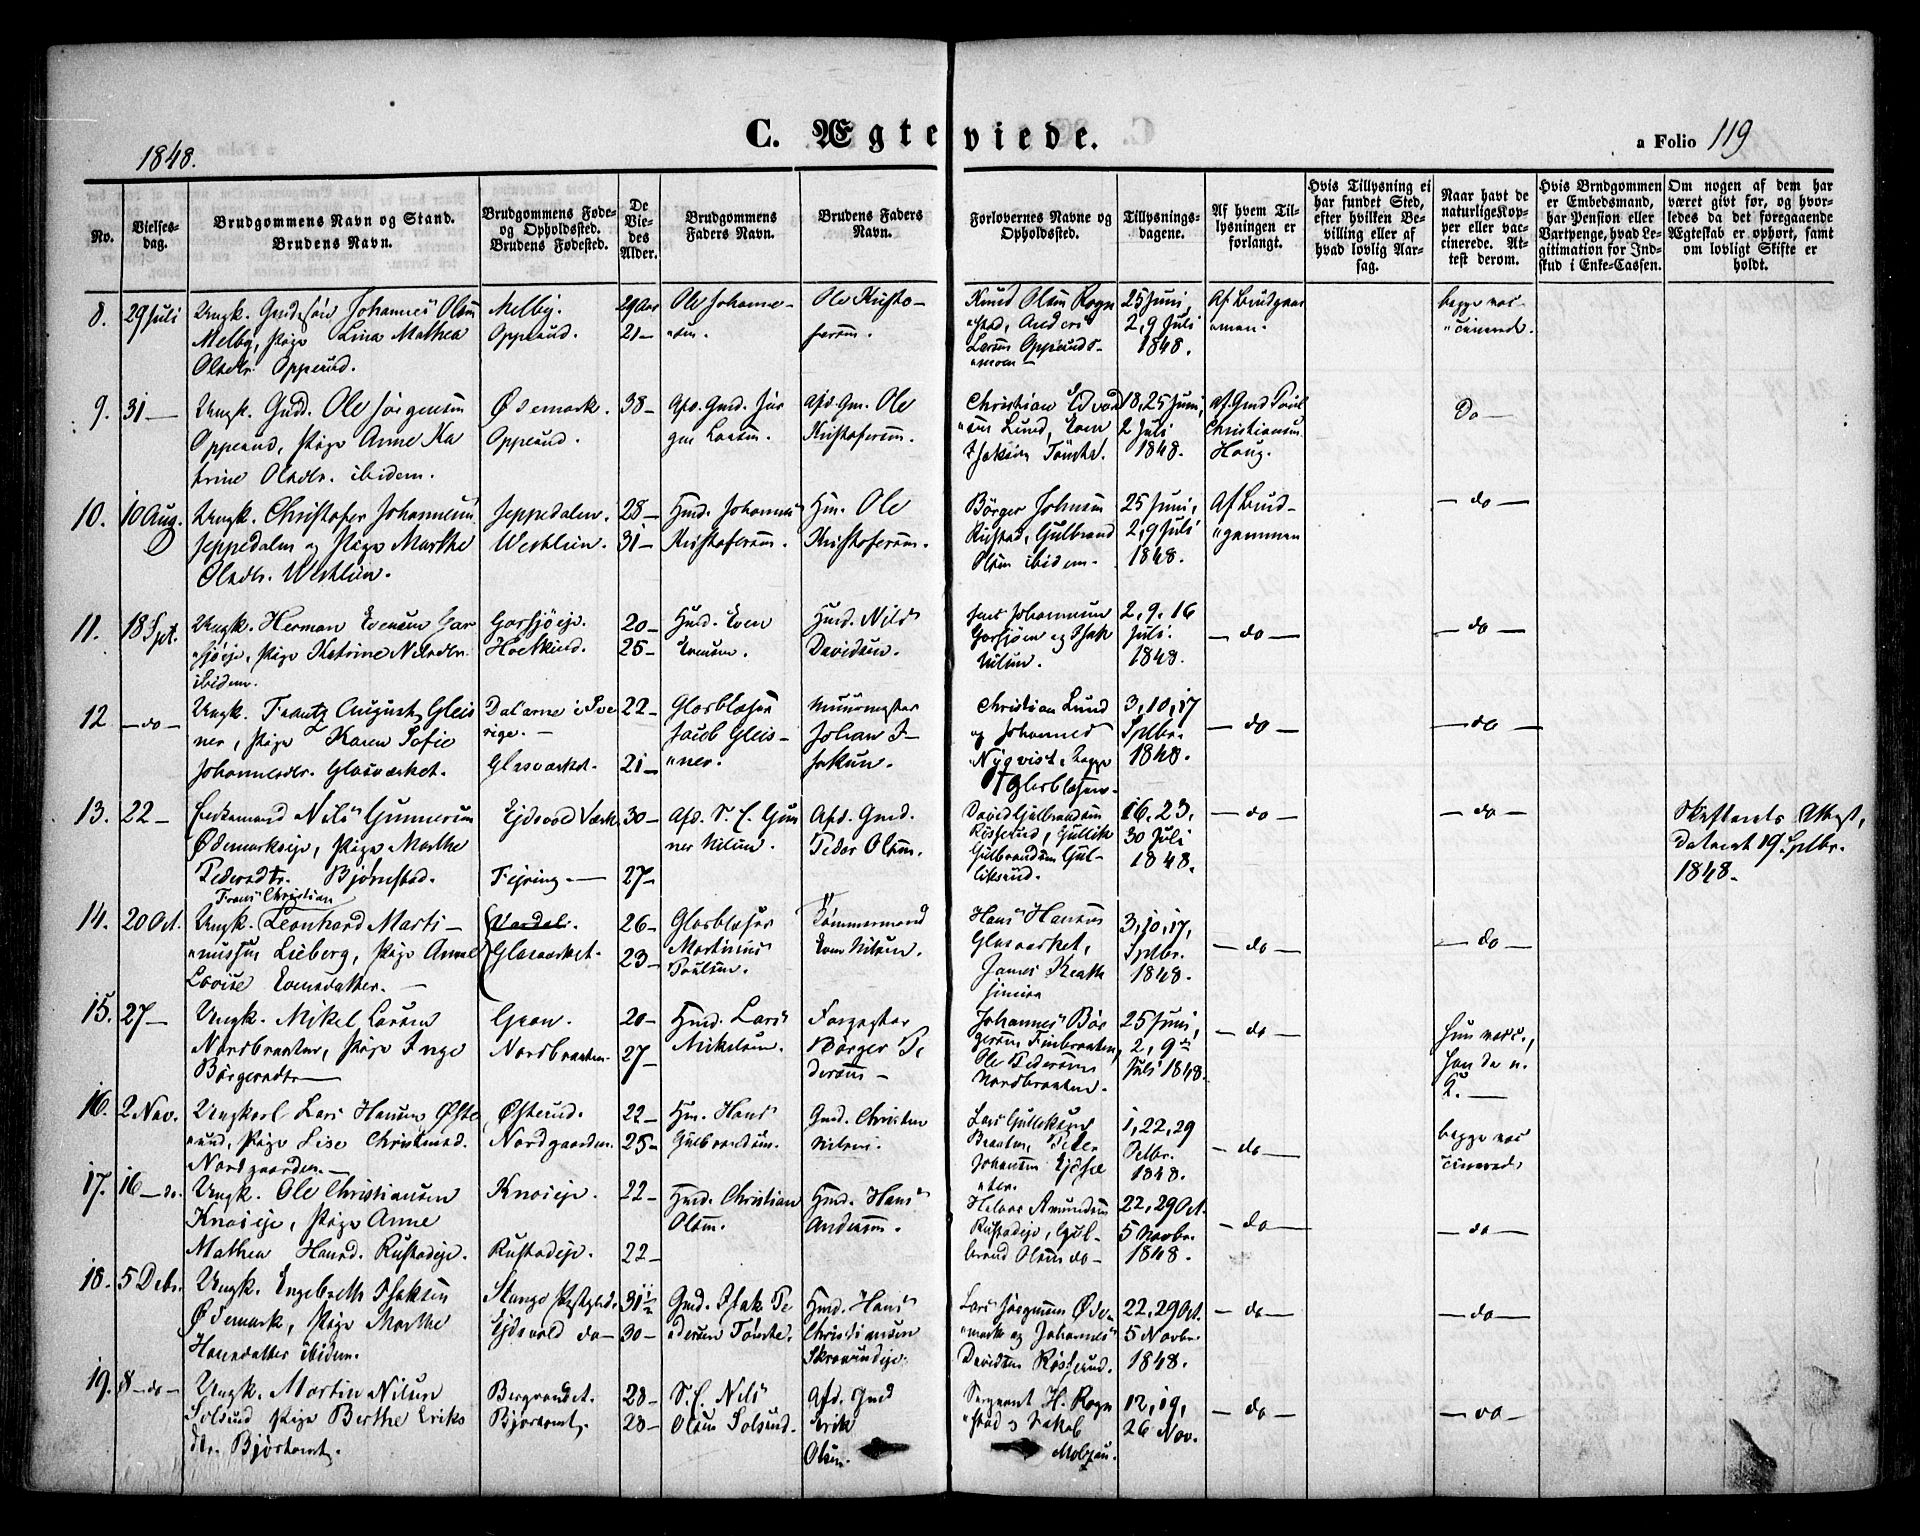 1848.
C. Ægteviede.
a Folio 119
No.
Vielses-
dag.
Brudgommens Navn og Stand.
Brudens Navn.
Brudgommens Føde-
og Opholdssted.
Brudens Fødested.
De
Vie-
des
Alder.
Brudgommens
Faders Navn.
Brudens Faders
Navn.
Forlovernes Navne og
Opholdssted.
Tillysnings-
dagene.
Af hvem Til-
lysningen er
forlangt.
Hvis Tillysning ei
har fundet Sted,
efter hvilken Be-
villing eller af
hvad lovlig Aar-
sag.
Naar havt de
naturlige Kop-
per eller vac-
cinerede. At-
test derom.
Hvis Brudgommen
er Embedsmand,
har Pension eller
Vartpenge, hvad Le-
gitimation for Ind-
skud i Enke-Cassen.
Om nogen af dem har
været givt før, og hvor-
ledes da det foregaaende
Ægteskab er ophørt, samt
om lovligt Skifte er
holdt.
8. 29 Juli
Ungk. Gmdesøn Johannes Olsen
Melby, Pige Lina Mathea
Olsdtr. Opperud.
Melby.
Opperud.
29 Aar
21 —
Ole Johanne-
"sen.
Ole Kristo-
fersen.
Knud Olsen Rogn
"stad, Anders
Larsen Opperuds-
"moen —
25 Juni,
2, 9 Juli
1848.
Af Brudgom-
"men.
begge vac-
"cinered.
9. 31 —
Ungk. Gmd. Ole Jørgensen
Opperud, Pige Anne Ka
trine Olsdtr. ibidem.
Ødemark.
Opperud.
38 —
Afd. Gmd. Jør
gen Larsen.
Afd. Gm. Ole
Kristofersen.
Christian Edvard
"sen Lund, Even
Isaksen Tømte.
18, 25 Juni,
2 Juli
1848.
Af Gmd Poul
Christiansen
Haug.
Do —
10. 10 Aug.
Ungk. Christofer Johannesen
Jeppedalen og Pige Marthe
Olsdtr. Westlien.
Jeppedalen.
Westlien.
28 —
31 —
Hmd. Johannes
Kristofersen.
Hm. Ole
Kristofersen.
Børger Johnsen
Rustad, Gulbrand
Olsen ibidem.
25 Juni,
2, 9 Juli
1848.
Af Brud-
"gommen
— do —
11. 18 Spt.
Ungk. Herman Evensen Gar
"sjøeje, Pige Katrine Nilsdtr.
ibidem.
Garsjøeje.
20 —
25 —
Hmd. Even
Evensen.
Hmd. Nils
Davidsen.
Johannesen
Garsjøen og Isak
Nilsen.
2, 9, 16
Juli.
1848.
— do —
— do —
12 — do —
Ungk. Frantz August Gleis
ner, Pige Karen Sofie
Johannesdtr. Glasværket.
Dalarne i Sve
rige. —
Glasværket.
22 —
21 —
Glasblæser
Jacob Gleis-
"ner.
Muurmester
Johan I-
saksen.
Christian Lund
og Johannes
Nyqvist, begge
Glasblæsere.
3, 10, 17
Sptbr.
1848.
— do —
— do —
13. 22 —
Enkemand Nils Gunnersen
Ødemarkseje, Pige Marthe
Pedersdtr. Bjørnstad.
Ejdsvold Værk.
Fejring —
30 —
27 —
Afd. S. E. Gun
ner Nilsen.
Afd. Gmd.
Peder Olsen.
David Gulbrandsen
Røsterud, Gullik
Gulbrandsen Gul-
liksrud.
16, 23,
30 Juli
1848.
— do —
— do —
Skifterets Attest,
dateret 19 Sptbr.
1848.
14. 20 Oct.
Frans Christian
Ungk. Leonhard Marti-
"nussen Lieberg, Pige Anne
Lovise Evensdatter. —
Vardal.
Glasværket.
26 —
23 —
Glasblæser
Martinius
Poulsen.
Tømmermand
Even Nilsen.
Hans Hansen
Glasværket,
James Keath
3, 10, 17,
Sptbr.
1848.
— do —
— do
15. 27 —
Ungk. Mikel Larsen
Nordbraaten, Pige Inge
Børgersdtr —
Gran.
Nordbraaten.
20 —
27 —
Hmd. Lars
Mikelsen.
Forpagter
Børger Pe
dersen —
Johannes Bør
gersen Finbraaten,
Ole Pedersen
Nordbraaten.
25 Juni,
2, 9de
Juli 1848.
— do —
Hun vacc.,
han d. n.
K. —
16. 2 Nov.
Ungkarl Lars Hansen Øste
"rud, Pige Lise Christensd.
Nordgaarden —
Østerud.
Nordgaarden.
22 —
25 —
Hm. Hans
Gulbrandsen.
Gmd. Christen
Nilsen.
Lars Gulliksrud
Braaten, Peder
Johansen Ejdsæ
"ter.
1, 22, 29
Octbr.
1848.
— do —
begge vac
"cinered.
17. 16 — do.
Ungk. Ole Christiansen
Knaieje, Pige Anne
Mathea Hansd. Rustadeje.
Knaieje.
Rustadeje.
22 —
22 —
Hmd. Christian
Olsen.
Hmd. Hans
Andersen.
Halvor Amundsen
Rustadeje, Gul-
brand Olsen do —
22, 29 Oct.
5 Novbr.
1848.
— do —
— do —
18. 5 Debr.
Ungk. Engebreth Isaksen
Ødemark, Pige Marthe
Hansdatter ibidem.
Stange Pgjeld.
Ejdsvold do —
31½
30 —
Gmd. Isak Pe
dersen Tømte.
Hmd. Hans
Christiansen
Skrarudeje.
Lars Jørgensen Øde-
"mark og Johannes
Davidsen Røsterud.
22, 29 Oct.
5 Novbr.
1848.
— do —
— do —
19. 8 — do —
Ungk. Martin Nilsen
Solsrud, Pige Berthe Eriks
dtr. Bjørtomt.
Bjørtomt,
28 —
28 —
S. E. Nils
Olsen Solsrud.
Afd. Gmd
Erik
Olsen.
Sergeant H. Rogn
"stad og Jakob
Molzau.
12, 19,
26 Nov.
— do —
— do —